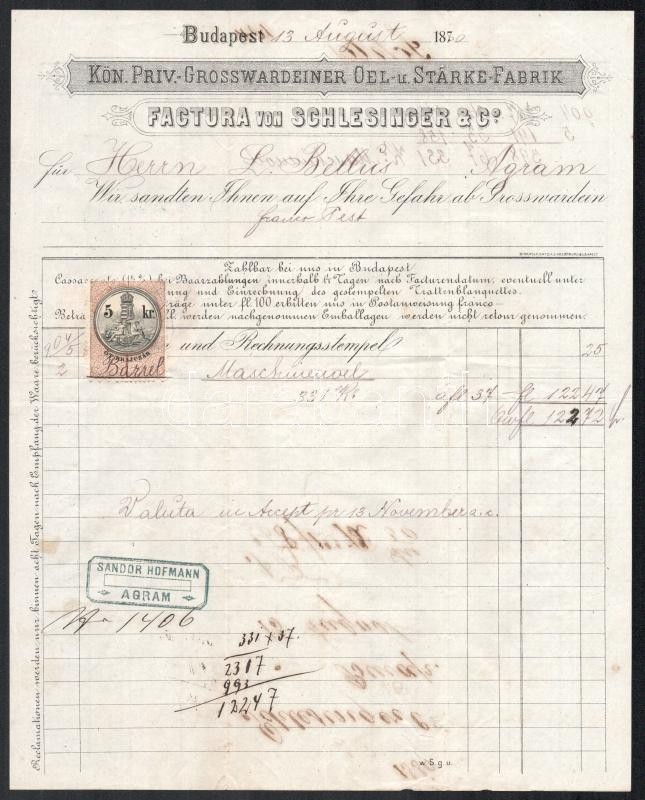 Budapest 13 August 1870
KÖN. PRIV.-GROSSWARDEINER OEL- u. STÄRKE-FABRIK
FACTURA VON SCHLESINGER & Co
für Herrn L. Bellus Agram
Wir sandten Ihnen auf Ihre Gefahr ab Grosswardein
franco Pest
Zahlbar bei uns in Budapest
bei Baarzahlungen innerhalb Tagen nach Facturendatum, eventuell unter
ung und Einrechnung des gestempelten Trattenblanquettes.
träge unter fl. 100 erbitten uns in Postanweisung franco
Betra werden nachgenommen Emballagen werden nicht retour genommen.
5 kr.
und Rechnungsstempel 25
2 Barrel Maschinenoel
331 Ko a fl 37 fl 122 47
fl 122 72
Valuta in Accept pr 13 November a.c.
SANDOR HOFMANN
AGRAM
No 1406
331 x 37.
2317
993
12247
w.S.g.u.
Reclamationen werden nur binnen acht Tagen nach Empfang der Waare berücksichtigt